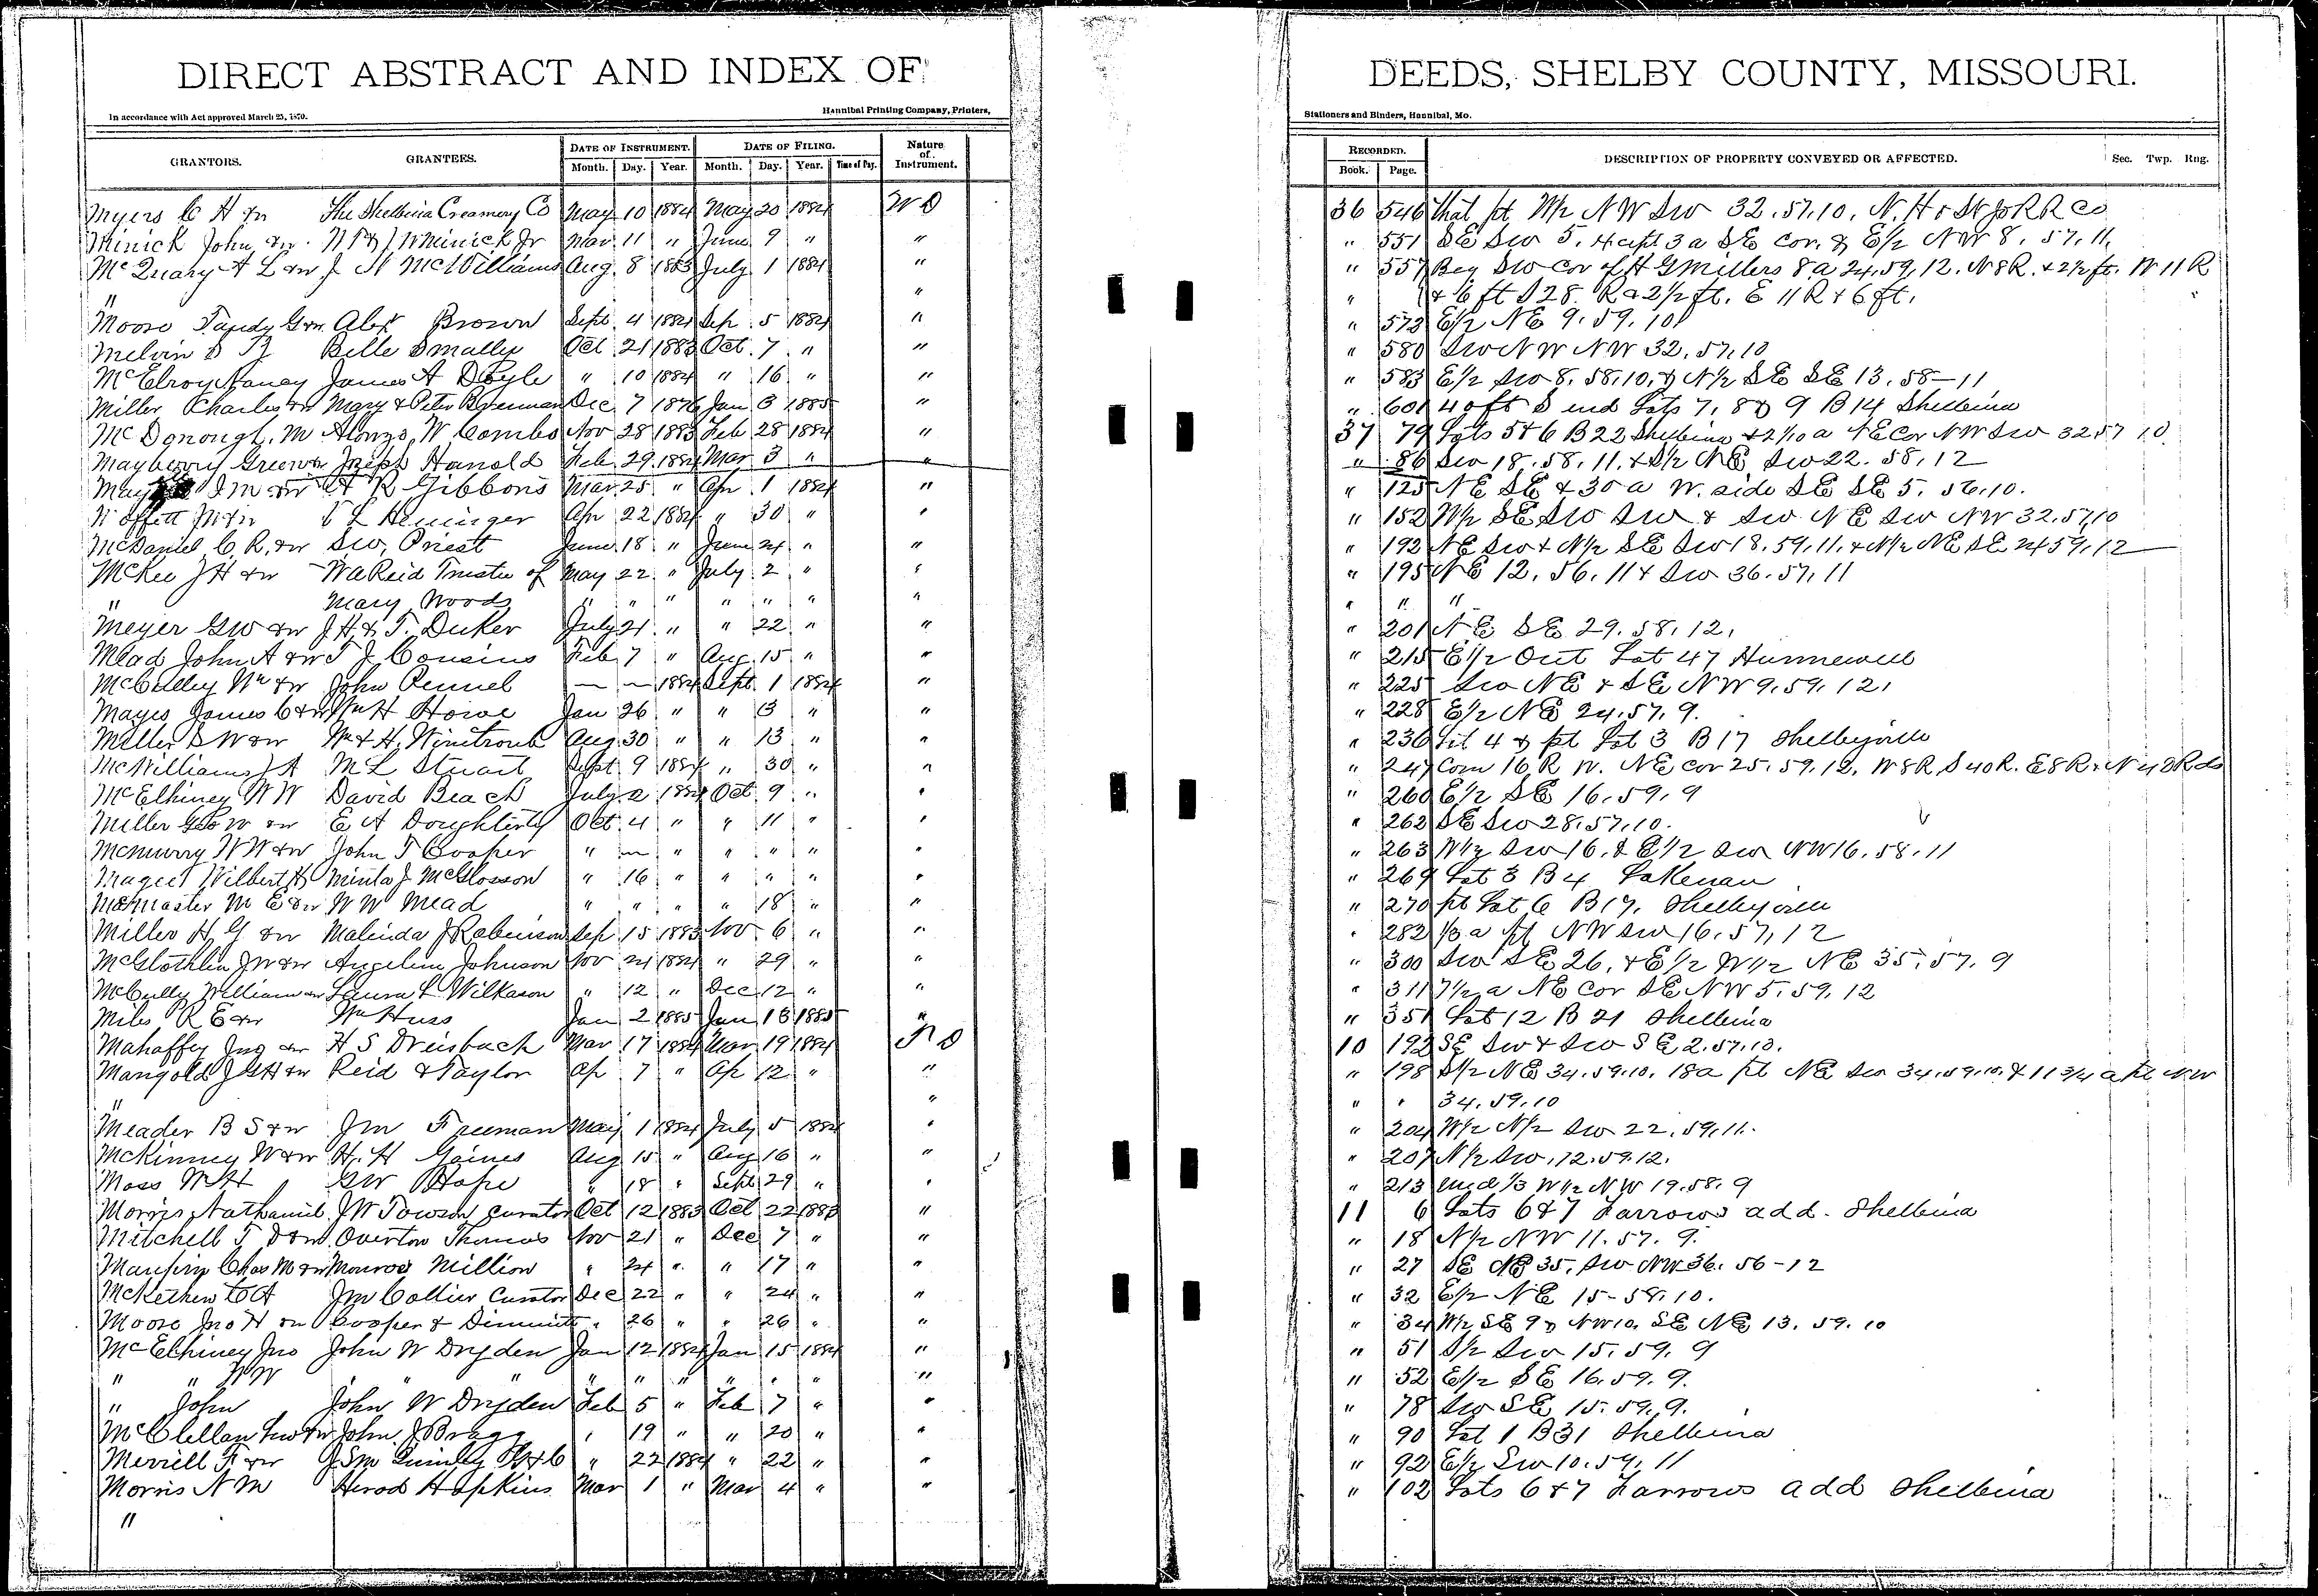 DIRECT ABSTRACT AND INDEX OF DEEDS, SHELBY COUNTY, MISSOURI.
In accordance with Act approved March 25, 1870. Hannibal Printing Company, Printers, Stationers and Binders, Hannibal, Mo.
GRANTORS. GRANTEES. DATE OF INSTRUMENT. DATE OF FILING. Nature of Instrument. RECORDED. DESCRIPTION OF PROPERTY CONVEYED OR AFFECTED. Sec. Twp. Rng.
Month. Day. Year. Month. Day. Year. Time of Day. Book. Page.
Myers C H &w The Shelbina Creamery Co May 10 1884 May 20 1884 WD 36 546 that pt W½ NW SW 32.57.10. N. H & St Jo RR Co
Minick John &w Minick Jr Mar 11 " June 9 " " " 551 SE SW 5. 3a SE cor. & E½ NW 8. 57.11.
McQuary A L &w J N McWilliams Aug. 8 1883 July 1 1884 " " 557 Beg SW cor of H G Millers 8a 24.59.12. N 8R. & 2½ ft. W 11 R
" " " & 6 ft S 28 R & 2½ ft. E 11 R & 6 ft.
Moore Tandy G &w Alex Brown Sept. 4 1884 Sep. 5 1884 " " 573 E½ NE 9.59.10
Melvin S Belle Smally Oct 21 1883 Oct. 7 " " " 580 SW NW NW 32.57.10
McElroy Nancy James A Doyle " 10 1884 " 16 " " " 583 E½ SW 8. 58.10. & N½ SE SE 13. 58-11
Miller Charles &w Mary & Peter Brennan Dec 7 1876 Jan 3 1885 " " 601 40 ft S end Lots 7, 8 & 9 B 14 Shelbina
McDonough, M Alonzo W Combs Nov 28 1883 Feb 28 1884 " 37 79 Lots 5 & 6 B 22 Shelbina & 2 1/10 a NE Cor NW SW 32 57 10
Mayberry Green &w Joseph Hanold Feb. 29. 1884 Mar 3 " " " 86 SW 18.58.11. & S½ NE SW 22. 58.12
J M &w A R Gibbons Mar 25 " Apr 1 1884 " " 125 NE SE & 30 a W. side SE SE 5. 56.10.
Moffett &w L Heninger Apr 22 1884 " 30 " " " 152 W½ SE SW SW & SW NE SW NW 32.57.10
McDaniel C. R. &w Priest June 18 " June 24 " " " 192 NE SW & N½ SE SW 18.59.11. & N½ NE SE 24 59.12
McKee J H &w W A Reid Trustee of May 22 " July 2 " " " 195 NE 12. 56. 11 & SW 36.57.11
" Mary Woods " " " " " " " " " "
Meyer G W &w J H & T. Duker July 21 " " 22 " " " 201 NE SE 29. 58. 12.
Mead John A &w T J Cousins Feb 7 " Aug 15 " " " 215 E½ Out Lot 47 Hunnewell
McCulley Wm &w John Pennel — — 1884 Sept. 1 1884 " " 225 SW NE & SE NW 9.59.12.
Mayes James C &w Wm H Howe Jan 26 " " 13 " " " 228 E½ NE 24.57.9.
Miller S W &w Wm & H. Winetroub Aug 30 " " 13 " " " 236 Lot 4 & pt Lot 3 B 17 Shelbyville
McWilliams J A M L Stuart Sept 9 1884 " 30 " " " 247 Com 16 R W. NE cor 25.59.12. W 8R S 40 R. E 8 R & N 40 Rds
McElhiney W W David Beach July 2 1884 Oct 9 " " " 260 E½ SE 16.59.9
Miller Geo W &w E A Doughterty Oct. 4 " " 11 " " " 262 SE SW 28.57.10.
McMurry W W &w John T Cooper " — " " " " " " 263 W½ SW 16. & E½ SW NW 16.58.11
Magee Wilbert H Minta J McGlosson " 16 " " " " " " 269 Lot 3 B 4 Lakenan
McMaster M E &w W W Mead " " " " 18 " " " 270 pt Lot 6 B 17. Shelbyville
Miller H G &w Malinda J Robinson Sep 15 1883 Nov. 6 " " " 282 1/3 a pt NW SW 16.57.12
McGlothlin J W &w Angeline Johnson Nov 24 1884 " 29 " " " 300 SW SE 26. & E½ W½ NE 35.57.9
McCully William &w Laura L Wilkason " 12 " Dec 12 " " " 311 7½ a NE cor SE NW 5.59.12
Miles R E &w Wm Huss Jan 2 1885 Jan 13 1885 " " 351 Lot 12 B 21 Shelbina
Mahaffey Jno &w H S Dreisbach Mar 17 1884 Mar 19 1884 10 192 SE SW & SW SE 2.57.10.
Mangold J G H &w Reid & Taylor Ap 7 " Ap 12 " " " 198 S½ NE 34.59.10. 18a pt NE SW 34.59.10. & 11 3/4 a pt NW
" " " " 34.59.10
Meader B S &w J M Freeman May 1 1884 July 5 1884 " " 204 W½ N½ SW 22.59.11.
McKinney W &w H. H Gaines Aug 15 " Aug 16 " " " 207 N½ SW. 12.59.12.
Moss W H G W Pope " 18 " Sept 29 " " " 213 und 1/3 W½ NW 19.58.9
Morris Nathaniel J W Towson curator Oct 12 1883 Oct 22 1883 " 11 6 Lots 6 & 7 Farrows add. Shelbina
Mitchell T D &w Overton Thomas Nov 21 " Dec 7 " " " 18 N½ NW 11.57.9.
Maupin Chas M &w Monroe Million " 24 " " 17 " " " 27 SE NE 35. SW NW 36. 56-12
McKethen J M Collier Curator Dec 22 " " 24 " " " 32 E½ NE 15-58.10.
Moore Jno H &w Cooper & Dimmitt " 26 " " 26 " " " 34 W½ SE 9 & NW 10. SE NE 13. 59. 10
McElhiney Jno John W Dryden Jan 12 1884 Jan 15 1884 " " 51 S½ SW 15.59.9
" " W W " " " " " " " " " " 52 E½ SE 16.59.9.
" John John W Dryden Feb 5 " Feb 7 " " " 78 SW SE 15.59.9.
McClellan &w John J Bragg " 19 " " 20 " " " 90 Lot 1 B 31 Shelbina
Merrill F &w " 22 1884 " 22 " " " 92 E½ SW 10.59.11
Morris N M Herod Hopkins Mar 1 " Mar 4 " " " 102 Lots 6 & 7 Farrows add Shelbina
"